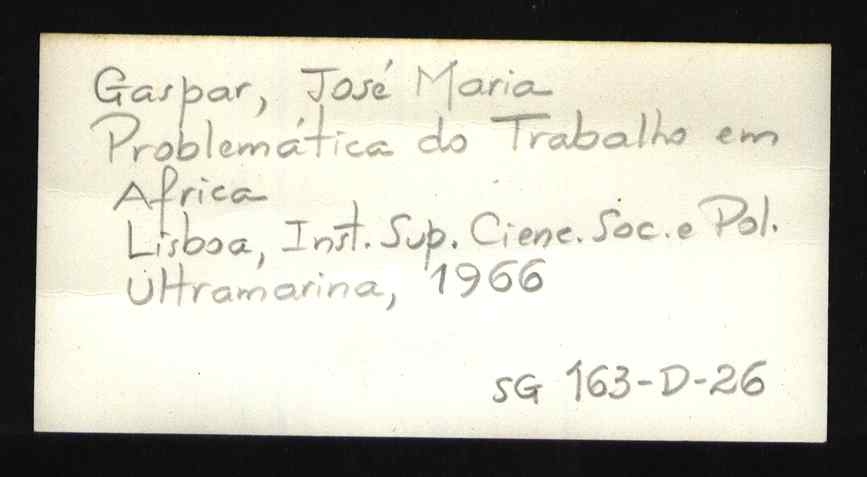 Gaspar, José Maria
Problemática do Trabalho em
Africa
Lisboa, Inst. Sup. Cienc. Soc. e Pol.
Ultramarina, 1966
SG 163-D-26